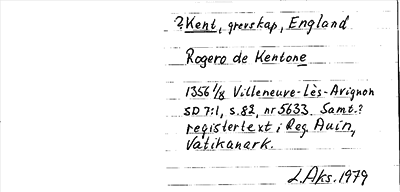 ?Kent, grevskap, England
Rogero de Kentone
1356 1/8 Villeneuve-Lès-Avignon
SD 7:1, s.82, nr 5633. Samt.?
registertext i Reg. Avin,
Vatikanark.
L.Aks.1979